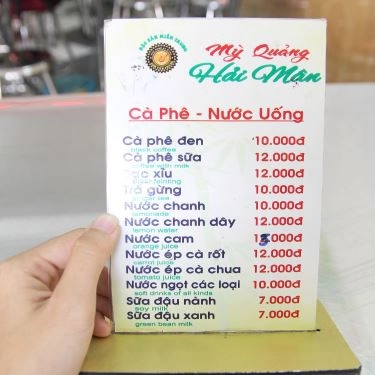 ĐẶC SẢN MIỀN TRUNG
Mỳ Quảng
Hải Mân
Cà Phê - Nước Uống
Cà phê đen 10.000đ
black coffee
Cà phê sữa 12.000đ
coffee with milk
Bạc xỉu 12.000đ
Trà gừng 10.000đ
Nước chanh 10.000đ
lemonade
Nước chanh dây 12.000đ
lemon water
Nước cam 13.000đ
orange juice
Nước ép cà rốt 12.000đ
carrot juice
Nước ép cà chua 12.000đ
tomato juice
Nước ngọt các loại 10.000đ
soft drinks of all kinds
Sữa đậu nành 7.000đ
soy milk
Sữa đậu xanh 7.000đ
green bean milk